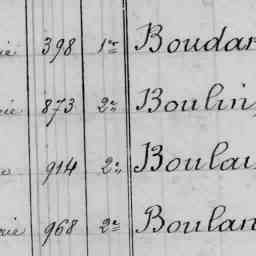 rie 398 1re Boudar
rie 873 2e Boulin,
914 2e Boulai
rie 968 2e Boulan